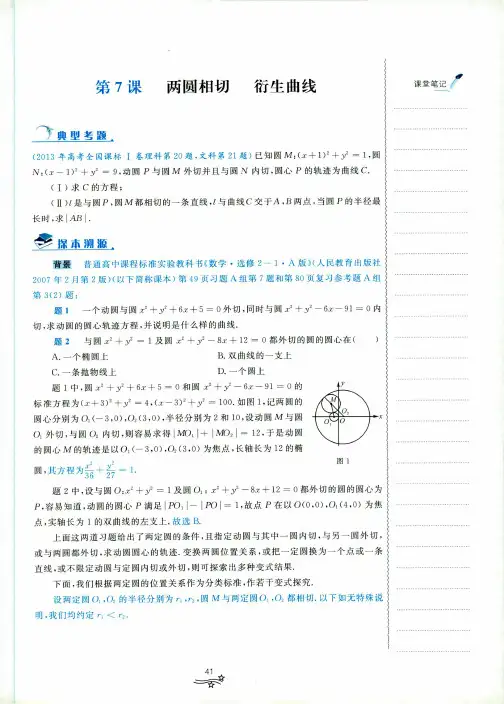 第7课　两圆相切　衍生曲线
课堂笔记
典型考题
(2013年高考全国课标Ⅰ卷理科第20题,文科第21题)已知圆M:(x+1)²+y²=1,圆
N:(x-1)²+y²=9,动圆P与圆M外切并且与圆N内切,圆心P的轨迹为曲线C.
(Ⅰ)求C的方程;
(Ⅱ)l是与圆P,圆M都相切的一条直线,l与曲线C交于A,B两点,当圆P的半径最
长时,求|AB|.
探本溯源
背景　普通高中课程标准实验教科书《数学·选修2-1·A版》(人民教育出版社
2007年2月第2版)(以下简称课本)第49页习题A组第7题和第80页复习参考题A组
第3(2)题:
题1　一个动圆与圆x²+y²+6x+5=0外切,同时与圆x²+y²-6x-91=0内
切,求动圆的圆心轨迹方程,并说明是什么样的曲线.
题2　与圆x²+y²=1及圆x²+y²-8x+12=0都外切的圆的圆心在(　　)
A.一个椭圆上　B.双曲线的一支上
C.一条抛物线上　D.一个圆上
题1中,圆x²+y²+6x+5=0和圆x²+y²-6x-91=0的
标准方程为(x+3)²+y²=4,(x-3)²+y²=100.如图1,记两圆的
圆心分别为O₁(-3,0),O₂(3,0),半径分别为2和10,设动圆M与圆
O₁外切,与圆O₂内切,则容易求得|MO₁|+|MO₂|=12,于是动圆
的圆心M的轨迹是以O₁(-3,0),O₂(3,0)为焦点,长轴长为12的椭
圆,其方程为x²/36+y²/27=1.
y
M
O₂
O₁ O x
图1
题2中,设与圆O:x²+y²=1及圆O₁:x²+y²-8x+12=0都外切的圆的圆心为
P,容易知道,动圆的圆心P满足|PO₁|-|PO|=1,故点P在以O(0,0),O₁(4,0)为焦
点,实轴长为1的双曲线的左支上.故选B.
上面这两道习题给出了两定圆的条件,且指定动圆与其中一圆内切,与另一圆外切,
或与两圆都外切,求动圆圆心的轨迹.变换两圆位置关系,或把一定圆换为一个点或一条
直线,或不限定动圆与定圆内切或外切,则可探索出多种变式结果.
下面,我们根据两定圆的位置关系作为分类标准,作若干变式探究.
设两定圆O₁,O₂的半径分别为r₁,r₂,圆M与两定圆O₁,O₂都相切.以下如无特殊说
明,我们均约定r₁<r₂.
41